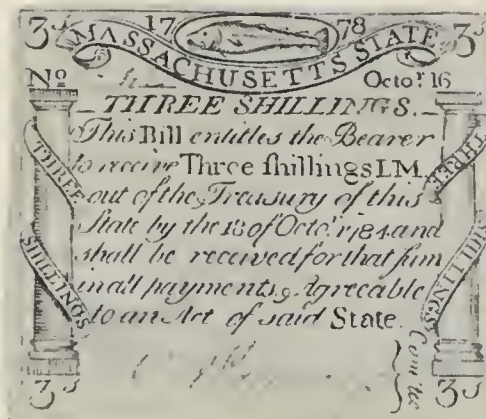 3s 17 78 3s
MASSACHUSETTS STATE
No Octor. 16
THREE SHILLINGS.
This Bill entitles the Bearer
to receive Three ſhillings LM.
out of the Treasury of this
State by the 18 of Octor. 1784 and
shall be received for that ſum
in all payments, Agreeable
to an Act of said State.
THREE SHILLINGS
THREE SHILLINGS
Comtee
3s 3s